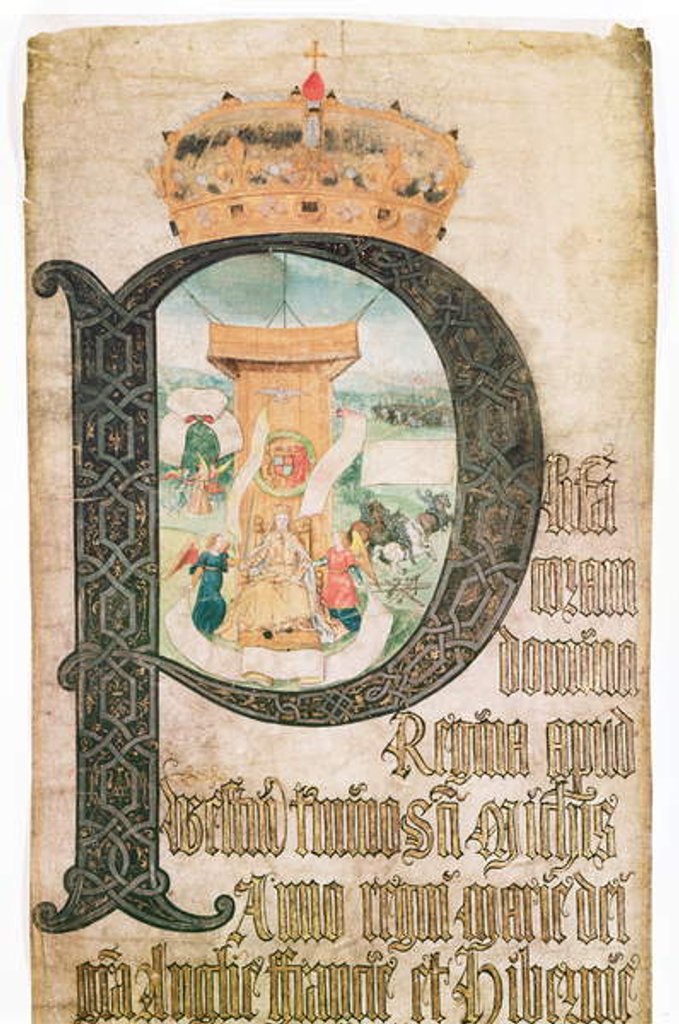 Plita
coram
domina
Regina apud
Westm termino Sci Michis
Anno regni Marie dei
gra Anglie ffrancie et Hibernie